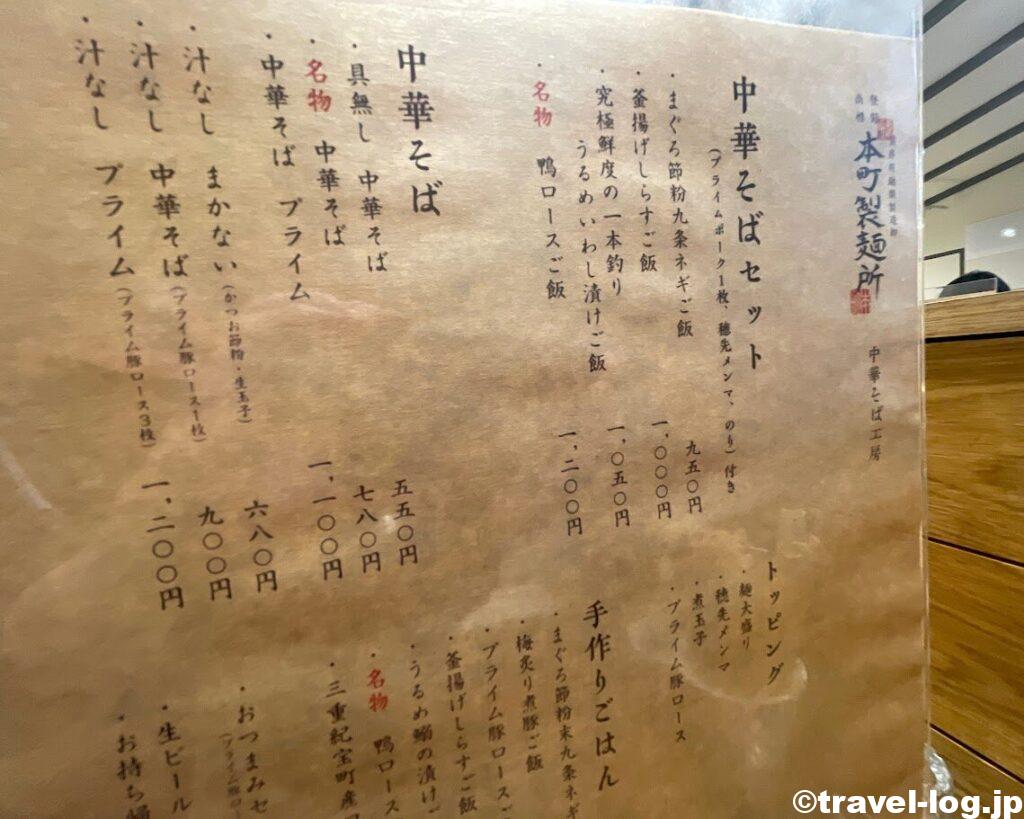 本町製麺所
中華そば工房
中華そばセット
(プライムポーク1枚、穂先メンマ、のり)付き
・まぐろ節粉九条ネギご飯 九五〇円
・釜揚げしらすご飯 一,〇〇〇円
・究極鮮度の一本釣り
うるめいわし漬けご飯 一,〇五〇円
・名物 鴨ロースご飯 一,二〇〇円
中華そば
・具無し 中華そば 五五〇円
・名物 中華そば 七八〇円
・中華そば プライム 一,一〇〇円
・汁なし まかない(かつお節粉・生玉子) 六八〇円
・汁なし 中華そば(プライム豚ロース1枚) 九〇〇円
・汁なし プライム(プライム豚ロース3枚) 一,二〇〇円
トッピング
・麺大盛り
・穂先メンマ
・煮玉子
・プライム豚ロース
手作りごはん
・まぐろ節粉末九条ネギ
・梅炙り煮豚ご飯
・プライム豚ロース
・釜揚げしらすご飯
・うるめ鰯の漬け
・名物 鴨ロース
・三重紀宝町産
・おつまみセ
(プライム豚ロ
・生ビール
・お持ち帰
©travel-log.jp